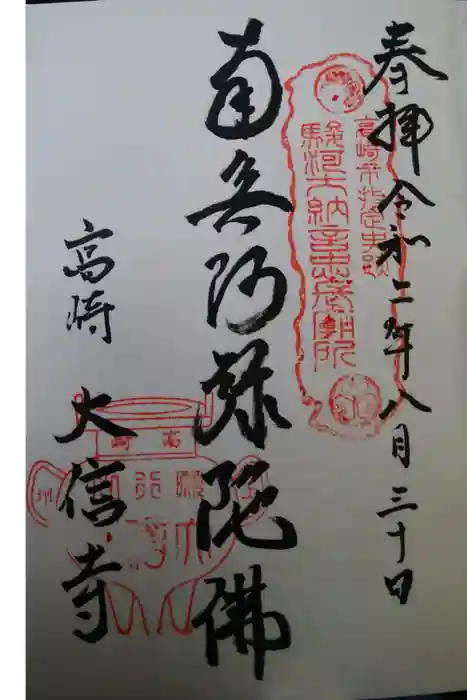 奉拝 令和二年八月三十日
高崎市指定史跡
駿河大納言忠長廟所
南無阿弥陀佛
高崎 大信寺
高崎